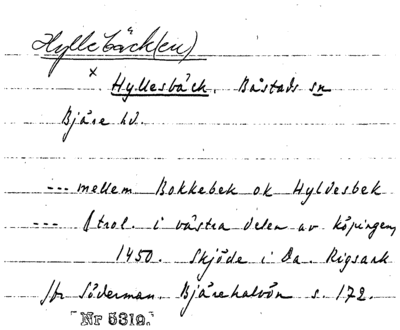 Hyllebäck(en)
x
Hyllesbäck. Båstads sn
Bjäre hd.
--- mellem Bokkebek ok Hyldesbek
--- Otrol. i västra delen av köpingen,
1450. Skjöde i Da. Rigsark
Jfr Söderman. Bjärehalvön s. 172.
Nr 5319.